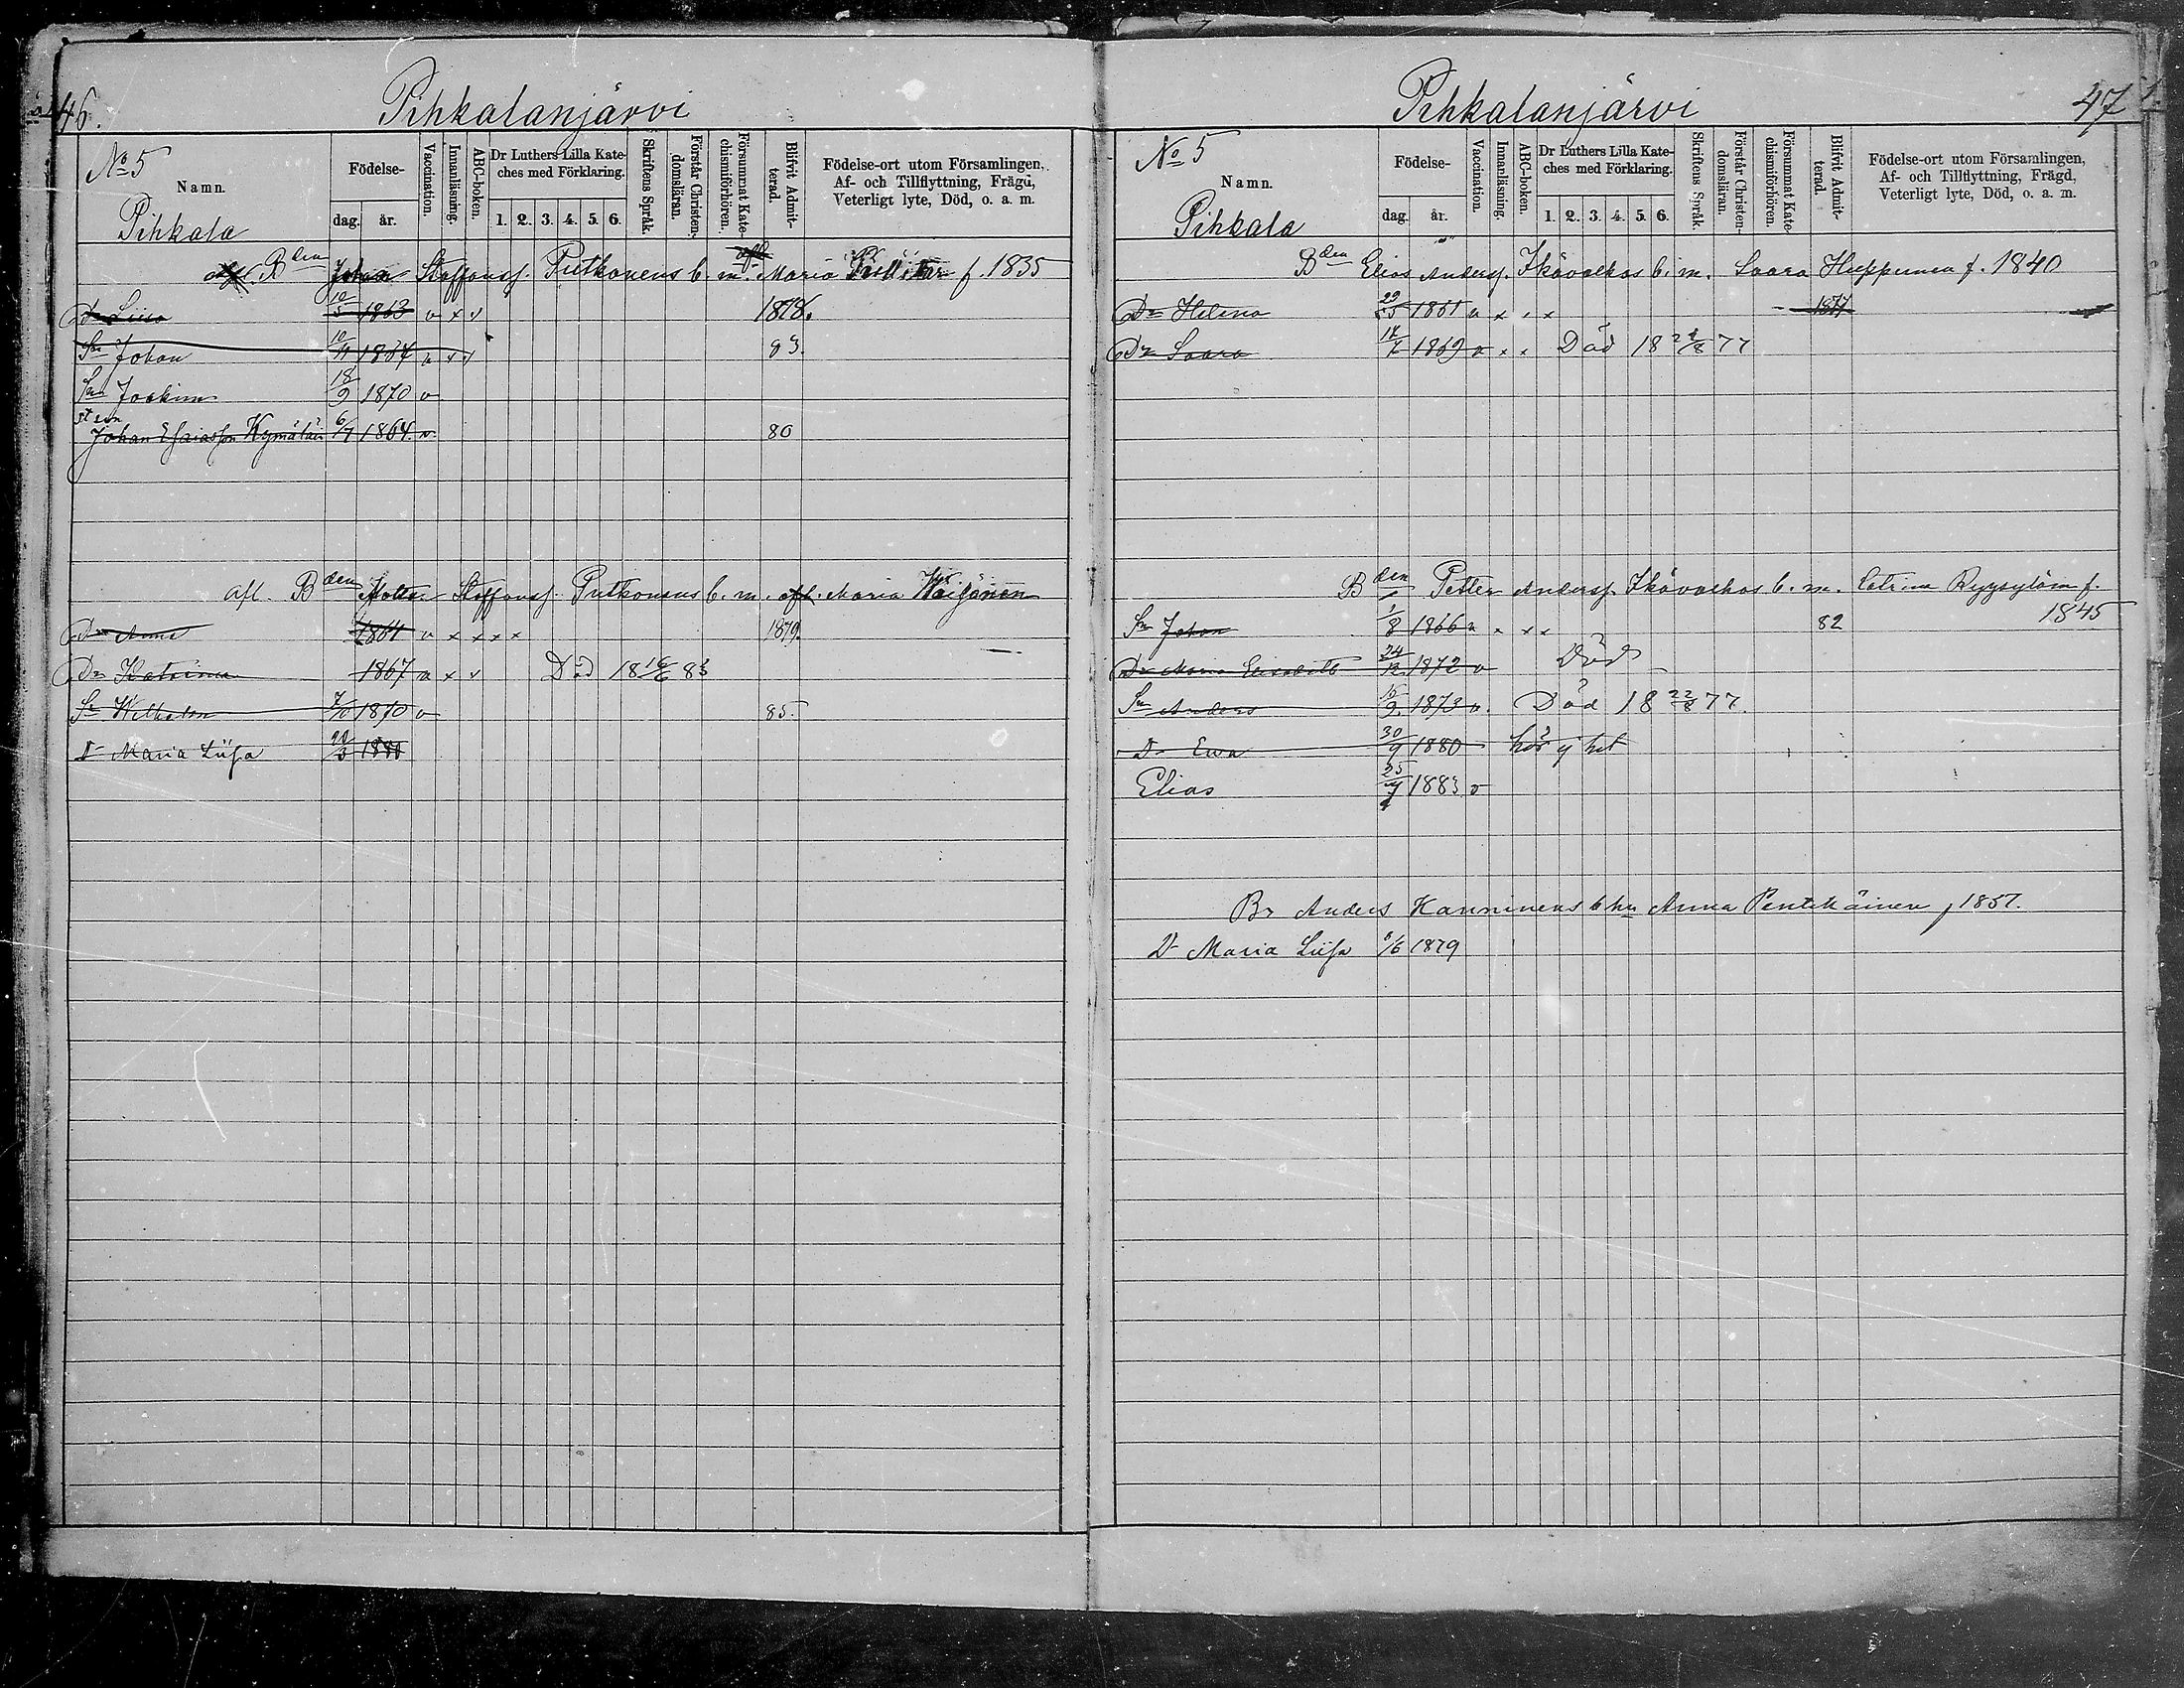 46.
Pihkalanjärvi
No 5
Namn.
Pihkala
Födelse-
dag.
år.
Vaccination.
Innanläsning.
ABC-boken.
Dr Luthers Lilla Kate-
ches med Förklaring.
1. 2. 3. 4. 5. 6.
Skriftens Språk.
Förstår Christen-
domsläran.
Försummat Kate-
chismiförhören.
Blifvit Admit-
terad.
Födelse-ort utom Församlingen,
Af- och Tillflyttning, Frägd,
Veterligt lyte, Död, o. a. m.
afl. Bden Johan Staffanss. Putkonens b. m. Maria f. 1835
Dr Liisa 10/5 1863 v x v 1878.
Sn Johan 1864 v v v 83.
Sn Joakim 18/9 1870 v
Johan Esaiasson Kymäläin 6/7 1864. v. 80
afl. Bden Matts Staffanss. Putkonens b. m. afl. Maria Waisänen
Dr Anna 1861 v x x x x 1879.
Dr Katrina 1867 v x v Död 18 83
Sn Wilhelm 7/10 1870 v 85.
Dr Maria Liisa
47
Pihkalanjärvi
No 5
Namn.
Pihkala
Födelse-
dag.
år.
Vaccination.
Innanläsning.
ABC-boken.
Dr Luthers Lilla Kate-
ches med Förklaring.
1. 2. 3. 4. 5. 6.
Skriftens Språk.
Förstår Christen-
domsläran.
Försummat Kate-
chismiförhören.
Blifvit Admit-
terad.
Födelse-ort utom Församlingen,
Af- och Tillflyttning, Frägd,
Veterligt lyte, Död, o. a. m.
Bden Elias Anderss. Ikävalkos b. m. Saara Huppunen f. 1840
Dr Helena 1861 v x x 1877
Dr Saara 1869 v x x Död 18 77
Bden Petter Anderss. Ikävalkos b. m. Catrina f.
1845
Sn Johan 1/8 1866 v x x x 82
Dr Maria Elisabeth 24/12 1872 v Död
Sn Anders 1873 v. Död 18 22/8 77.
Dr Ewa 30/9 1880 hör ej hit
Elias 1883 v
Br Anders Hanninens b hu Anna Pentikäinen f 1857.
Dr Maria Liisa 1879